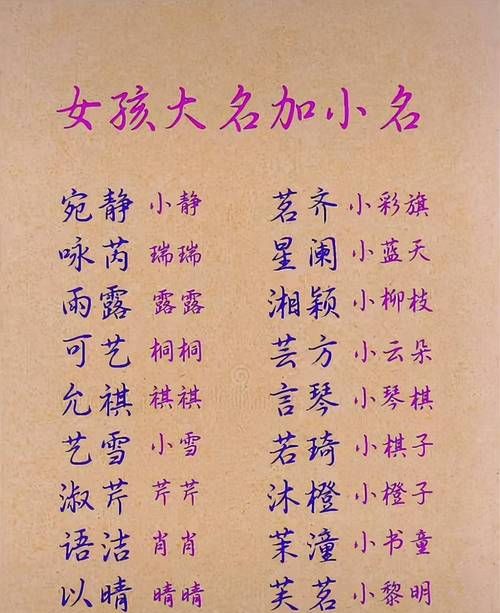 女孩大名加小名
宛静 小静 茗齐 小彩旗
咏芮 瑞瑞 星阑 小蓝天
雨露 露露 湘颖 小柳枝
可艺 桐桐 芸方 小云朵
允祺 祺祺 言琴 小琴棋
艺雪 小雪 若琦 小棋子
淑芹 芹芹 沐橙 小橙子
语洁 肖肖 茉潼 小书童
以晴 晴晴 芙茗 小黎明